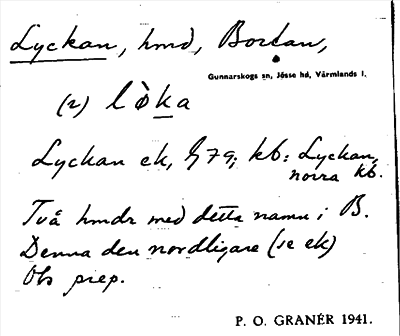 Lyckan, hmd, Bortan,
Gunnarskogs sn, Jösse hd, Värmlands l.
(2) lo̊ka
Lyckan ek, G79; kb: Lyckan,
norra kb.
Två hmdr med detta namn i B.
Denna den nordligare (se ek)
Obs prep.
P. O. GRANÉR 1941.